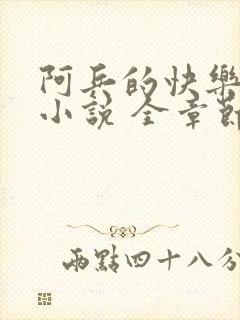 阿兵的快樂
小說 全章節
兩點四十八分